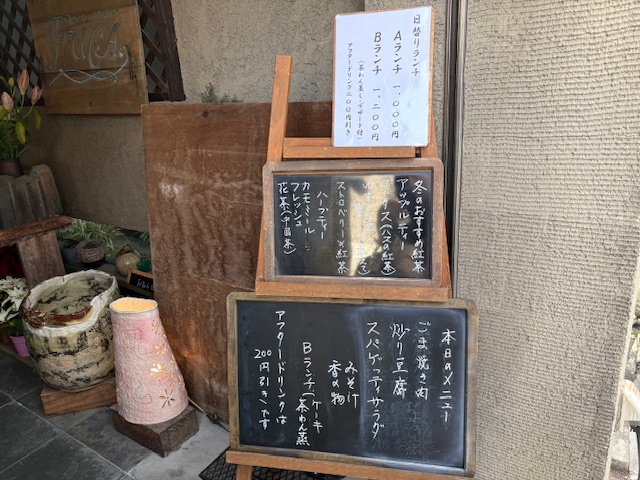 FUCA
日替りランチ
Aランチ 一、〇〇〇円
Bランチ 一、二〇〇円
(茶わん蒸し・デザート付)
アフタードリンク二〇〇円引き
冬のおすすめ紅茶
アップルティー
(ハスの紅茶)
ストロベリーの紅茶
ハーブティー
カモミール
フレッシュ
花茶(中国茶)
本日のメニュー
ごま焼き肉
炒り豆腐
スパゲッティサラダ
みそ汁
香の物
Bランチ(ケーキ
茶わん蒸
アフタードリンクは
200円引きです